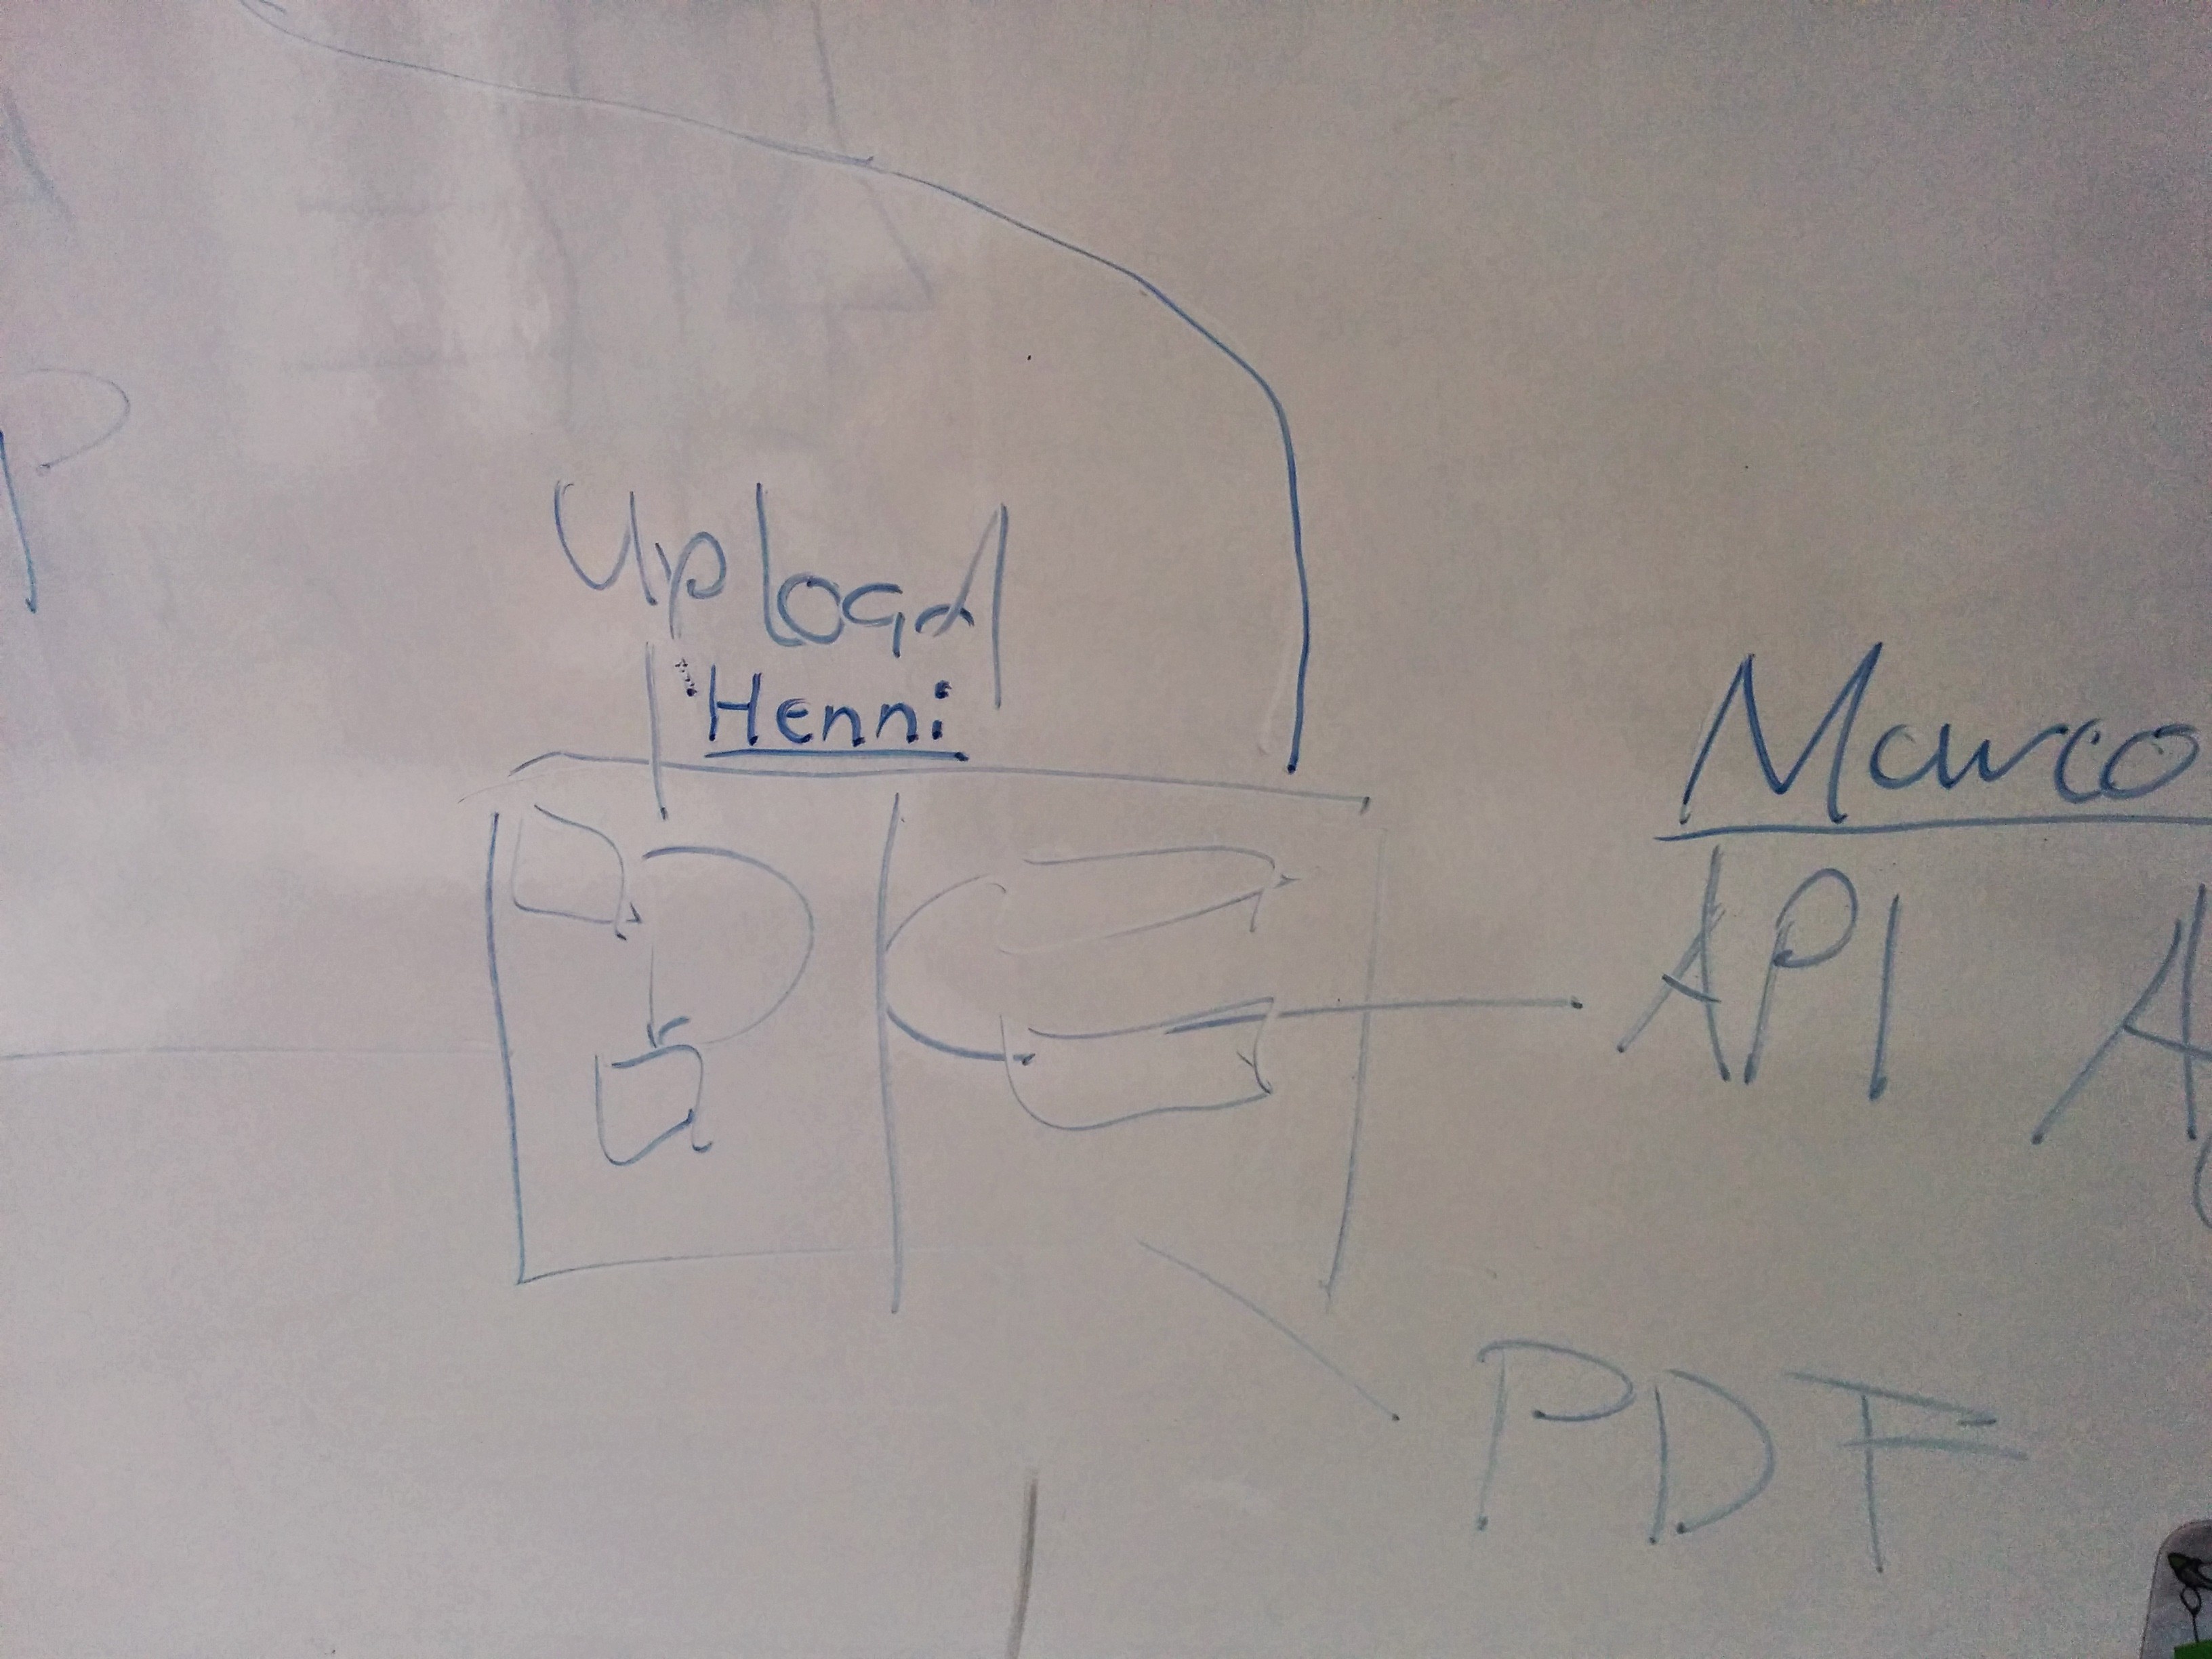 P
Upload
Henni
Marco
API A
PDF